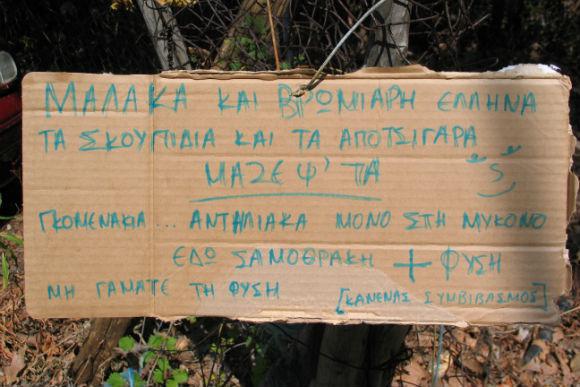 ΜΑΛΑΚΑ ΚΑΙ ΒΡΩΜΙΑΡΗ ΕΛΛΗΝΑ
ΤΑ ΣΚΟΥΠΙΔΙΑ ΚΑΙ ΤΑ ΑΠΟΤΣΙΓΑΡΑ
ΜΑΖΕΨ' ΤΑ
ΓΚΟΜΕΝΑΚΙΑ... ΑΝΤΗΛΙΑΚΑ ΜΟΝΟ ΣΤΗ ΜΥΚΟΝΟ
ΕΔΩ ΣΑΜΟΘΡΑΚΗ + ΦΥΣΗ
ΜΗ ΓΑΜΑΤΕ ΤΗ ΦΥΣΗ [ΚΑΝΕΝΑΣ ΣΥΝΒΙΒΑΣΜΟΣ]